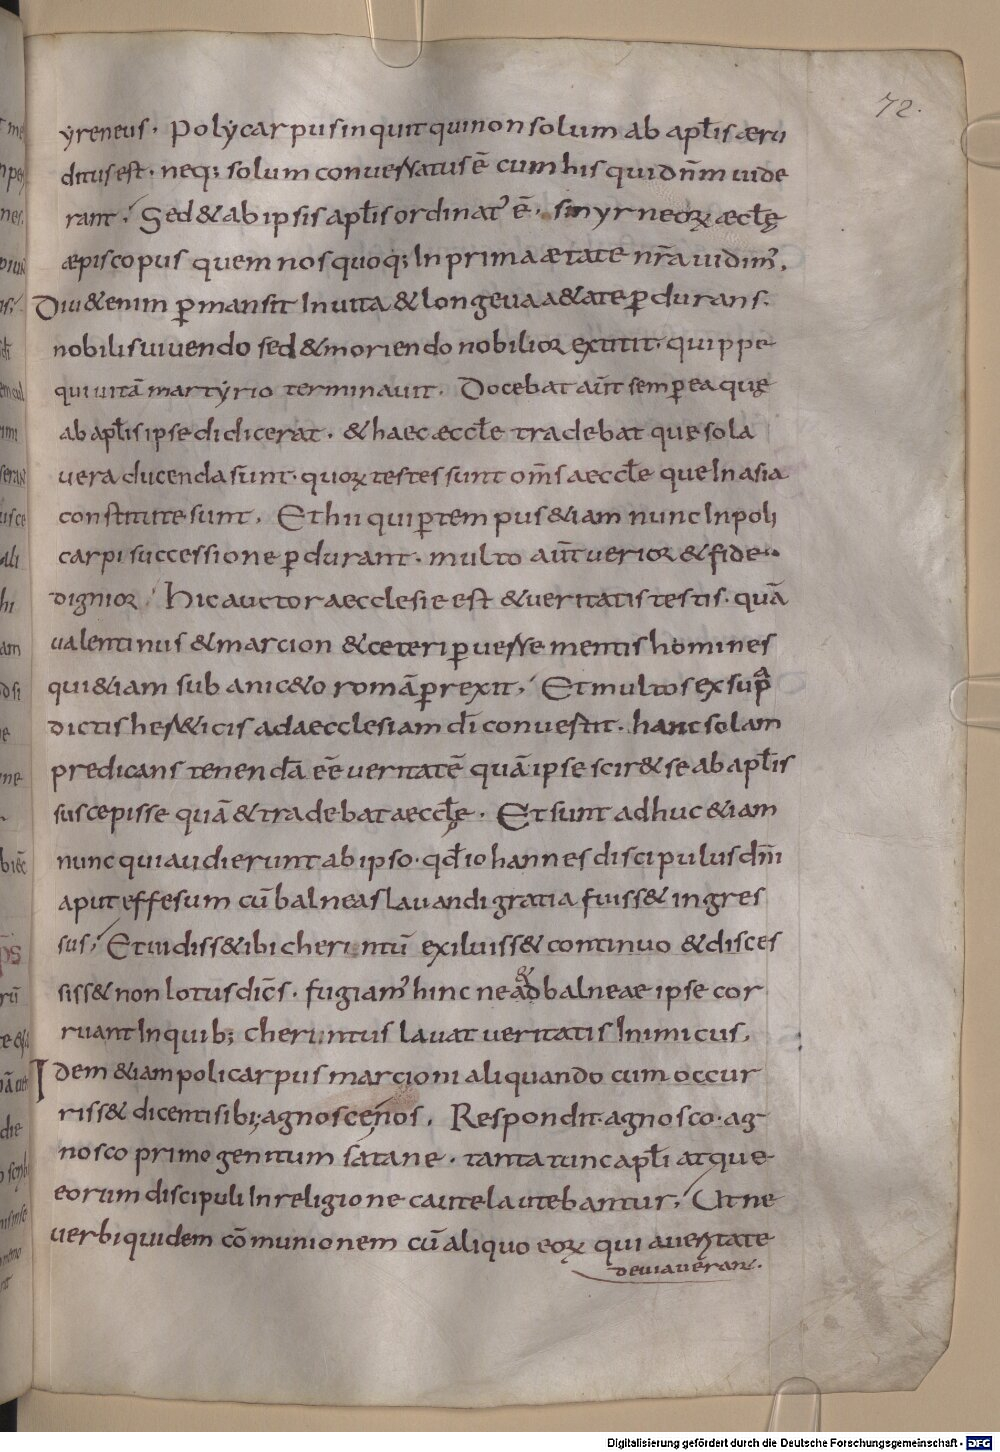 72.
yreneus. Polycarpus inquit qui non solum ab apłis æru
ditus est. neq; solum conuersatus ē cum his qui dn̄m uide
rant. Sed & ab ipsis apłis ordinat' ē. smyrneoꝝ æcłę
æpiscopus quem nos quoq; In prima ætate nr̄a uidim'.
Diu &enim ꝑmansit In uita & longeua a&ate ꝑdurans.
nobilis uiuendo sed & moriendo nobilior extitit. quippe
qui uitā martyrio terminauit. Docebat aūt semꝑ ea quę
ab apłis ipse didicerat. & haec æccłe tradebat que sola
uera ducenda sunt. quoꝝ testes sunt om̄s aeccłe que In asia
constitute sunt. Et hii qui ꝑ tempus &iam nunc In poli
carpi successione ꝑdurant. multo aūt uerior & fide
dignior. Hic auctor aecclesie est & ueritatis testis. quā
ualentinus & marcion & ceteri ꝑuerse mentis homines
qui &iam sub anic&o romā ꝑrexit. Et multos ex sup̄ra
dictis her&icis ad aecclesiam dī conuertit. hanc solam
predicans tenendā eē ueritatē quā ipse scir& se ab apłis
suscepisse quā & tradebat aeccłe. Et sunt adhuc &iam
nunc qui audierunt ab ipso. qđ iohannes discipulus dn̄i
aput effesum cū balneas lauandi gratia fuiss& ingres
sus. Et uidiss& ibi cherintū exiluiss& continuo & disces
siss& non lotus dicēs. fugiam' hinc ne & ad balneae ipse cor
ruant In quib; cheruntus lauat ueritatis Inimicus.
Idem &iam policarpus marcioni aliquando cum occur
riss& dicenti sibi; agnosce nos. Respondit. agnosco. ag
nosco primogenitum satane. tanta tunc apłi atque
eorum discipuli In religione cautela utebantur. Ut ne
uerbi quidem cōmunionem cū aliquo eoꝝ qui aueritate
deuiauerant.
Digitalisierung gefördert durch die Deutsche Forschungsgemeinschaft - DFG